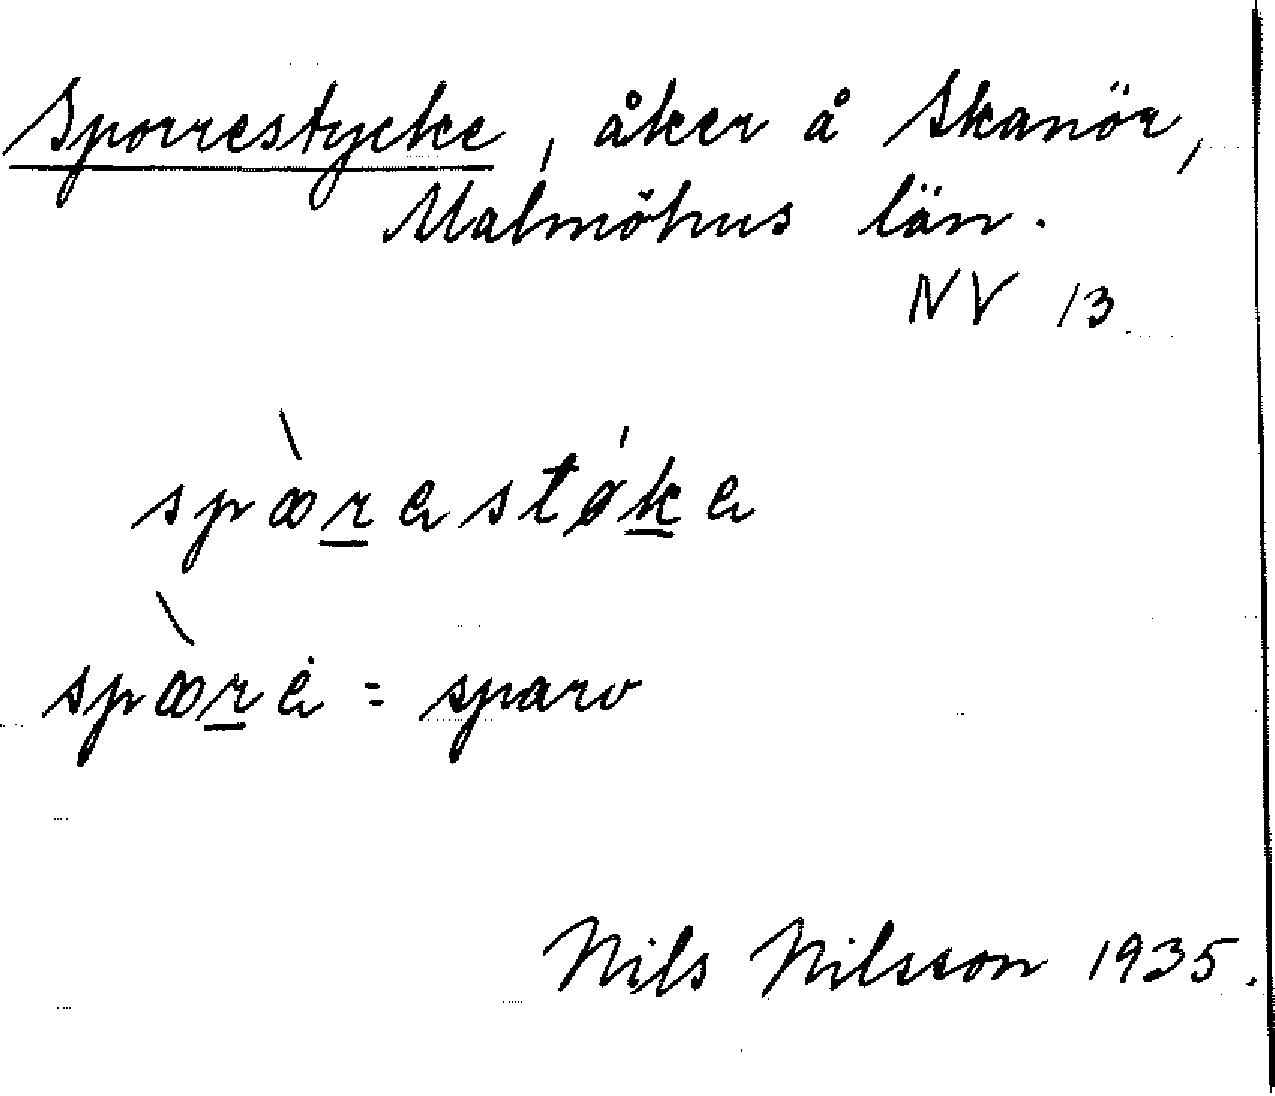 Sporrestycke, åker å Skanör,
Malmöhus län.
NV 13
spòrestǿke
spòre = sparv
Nils Nilsson 1935.